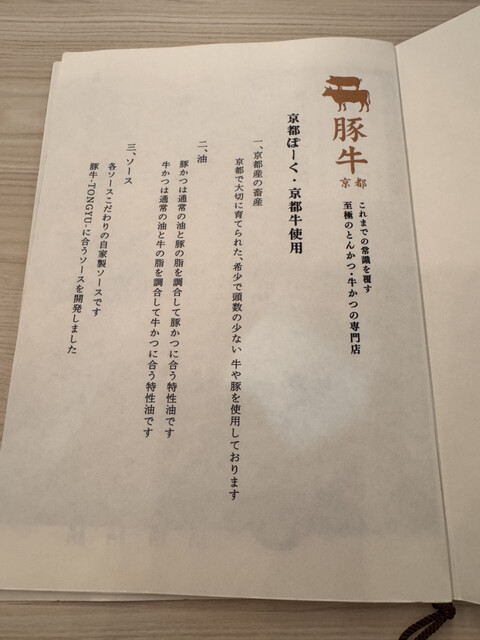 豚牛
京都
これまでの常識を覆す
至極のとんかつ・牛かつの専門店
京都ぽーく・京都牛使用
一、京都産の畜産
京都で大切に育てられた、希少で頭数の少ない 牛や豚を使用しております
二、油
豚かつは通常の油と豚の脂を調合して豚かつに合う特性油です
牛かつは通常の油と牛の脂を調合して牛かつに合う特性油です
三、ソース
各ソースこだわりの自家製ソースです
豚牛-TONGYU-に合うソースを開発しました